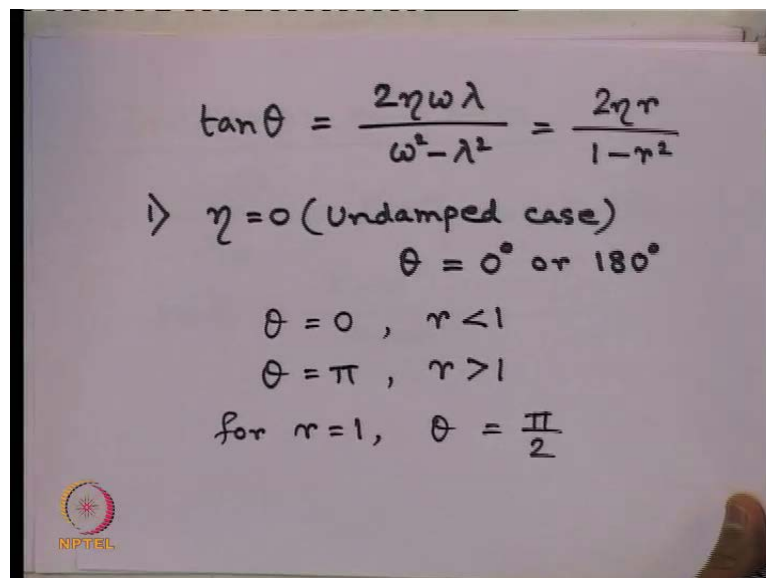 tan θ = 2ηωλ / (ω² − λ²) = 2ηr / (1 − r²)
1) η = 0 (Undamped case)
θ = 0° or 180°
θ = 0 , r < 1
θ = π , r > 1
for r = 1, θ = π/2
NPTEL